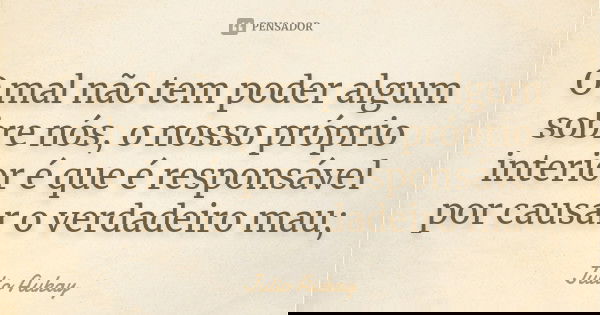 PENSADOR
O mal não tem poder algum
sobre nós, o nosso próprio
interior é que é responsável
por causar o verdadeiro mau;
Julio Aukay